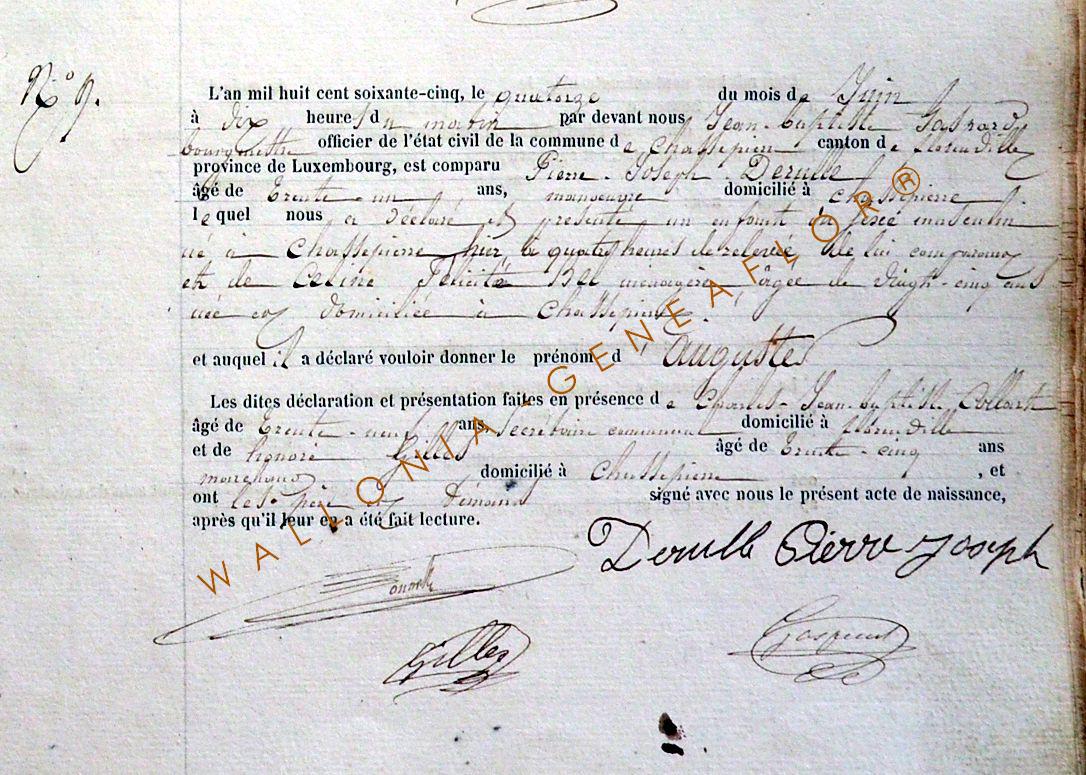 N° 9.
L'an mil huit cent soixante-cinq, le quatorze du mois de Juin
à dix heures du matin par devant nous Jean-baptiste Gaspard
bourgmestre officier de l'état civil de la commune de Chassepierre canton de florenville
province de Luxembourg, est comparu Pierre-Joseph Derulle
âgé de Trente-un ans, manoeuvre domicilié à chassepierre
lequel nous a déclaré et présenté un enfant du sexe masculin
né à Chassepierre hier, à quatre heures de relevée, de lui comparant
et de Celine Félicité Bel ménagère, âgée de vingt-cinq ans
née et domiciliée à Chassepierre
et auquel il a déclaré vouloir donner le prénom d'auguste
Les dites déclaration et présentation faites en présence de Charles-Jean-baptiste Collart
âgé de Trente-neuf ans secrétaire communal domicilié à florenville
et de honoré Gilles âgé de Trente-cinq ans
domicilié à Chassepierre, et
ont les père et témoins signé avec nous le présent acte de naissance,
après qu'il leur en a été fait lecture.
Derulle Pierre Joseph
Gilles
Gaspard
WALLONIA-GENEAFLOR®